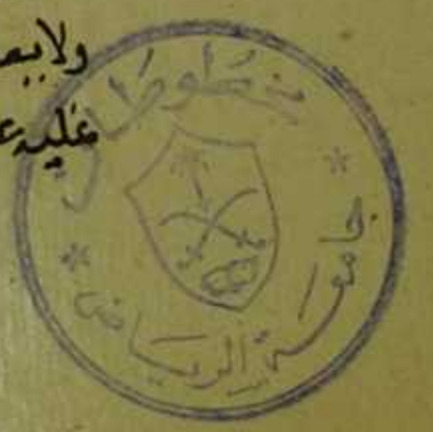 ولا يص
عليه ع
مخطوطات
جامعة الرياض